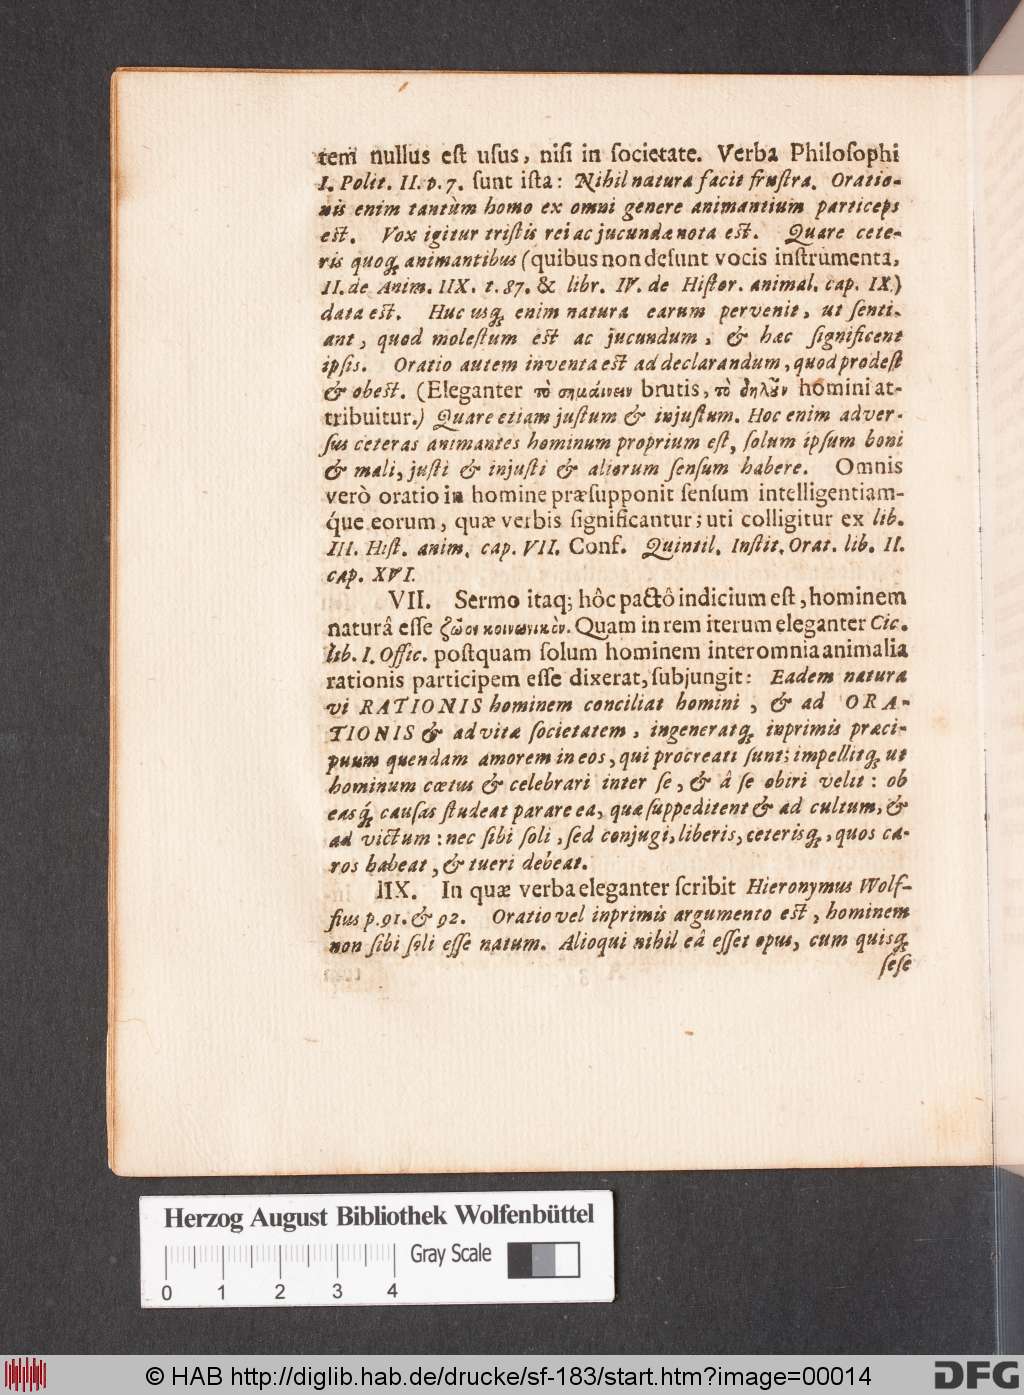 tem nullus est usus, nisi in societate. Verba Philosophi
I. Polit. II. p. 7. sunt ista: Nihil natura facit frustra. Oratio-
nis enim tantùm homo ex omni genere animantium particeps
est. Vox igitur tristis rei ac jucundæ nota est. Quare cete-
ris quoq; animantibus (quibus non desunt vocis instrumenta,
II. de Anim. IIX. t. 87. & libr. IV. de Histor. animal. cap. IX.)
data est. Huc usq; enim natura earum pervenit, ut senti-
ant, quod molestum est ac jucundum, & hæc significent
ipsis. Oratio autem inventa est ad declarandum, quod prodest
& obest. (Eleganter τὸ σημαίνειν brutis, τὸ δηλοῦν homini at-
tribuitur.) Quare etiam justum & injustum. Hoc enim adver-
sus ceteras animantes hominum proprium est, solum ipsum boni
& mali, justi & injusti & aliorum sensum habere. Omnis
verò oratio in homine præsupponit sensum intelligentiam-
que eorum, quæ verbis significantur; uti colligitur ex lib.
III. Hist. anim. cap. VII. Conf. Quintil. Instit. Orat. lib. II.
cap. XVI.
VII. Sermo itaq; hôc pactô indicium est, hominem
naturâ esse ζῶον κοινωνικὸν. Quam in rem iterum eleganter Cic.
lib. I. Offic. postquam solum hominem inter omnia animalia
rationis participem esse dixerat, subjungit: Eadem natura
vi RATIONIS hominem conciliat homini, & ad ORA-
TIONIS & ad vitæ societatem, ingeneratq; inprimis præci-
puum quendam amorem in eos, qui procreati sunt; impellitq; ut
hominum cœtus & celebrari inter se, & â se obiri velit: ob
easq; causas studeat parare ea, quæ suppeditent & ad cultum, &
ad victum: nec sibi soli, sed conjugi, liberis, ceterisq;, quos ca-
ros habeat, & tueri debeat.
IIX. In quæ verba eleganter scribit Hieronymus Wolf-
fius p. 91. & 92. Oratio vel inprimis argumento est, hominem
non sibi soli esse natum. Alioqui nihil eâ esset opus, cum quisq;
sese
Herzog August Bibliothek Wolfenbüttel
Gray Scale
0 1 2 3 4
© HAB http://diglib.hab.de/drucke/sf-183/start.htm?image=00014
DFG